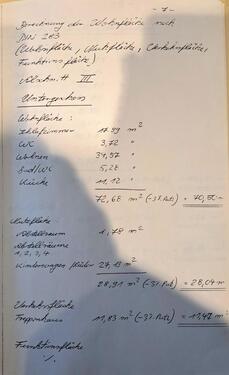 - 7 -
Berechnung der Wohnfläche nach
DIN 283
(Wohnfläche, Nutzfläche, Verkehrsfläche,
Funktionsfläche)
Abschnitt III
Untergeschoss
Wohnfläche:
Schlafzimmer 17.99 m²
WC 3,72 "
Wohnen 34,57 "
Bad/WC 5,28 "
Küche 11,12 "
72,68 m² (-3% Putz) = 70,50
Nutzfläche:
Abstellraum 1,78 m²
Abstellräume
1, 2, 3, 4
27,13 m²
28,91 m² (-3% Putz) = 28,04 m
Verkehrsfläche
Treppenhaus 11,83 m² (-3% Putz) = 11,47 m²
Funktionsfläche
%